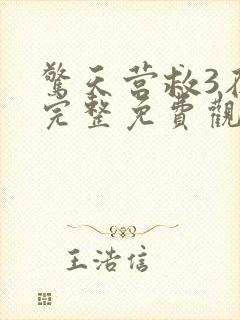 驚天营救3在
完整免費觀
王浩信